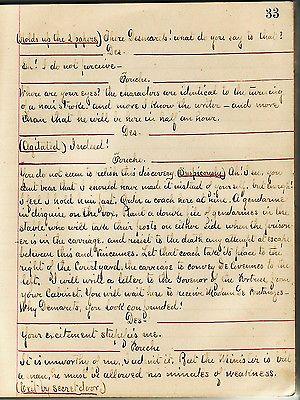 33
(Holds up the 2 papers) There Desmarets! what do you say to that?
Des-
Sir! I do not perceive—
Fouche.
Where are your eyes? The characters are identical to the turning
of a hair stroke! and more I know the writer — and more
than that he will be here in half an hour.
Des.
(Agitated) Indeed!
Fouche.
You do not seem to relish this discovery. (Suspiciously) Ah! I see, you
cant bear that I should have made it instead of yourself, but enough!
I feel I hold him fast. Order a coach here at nine. A gendarme
in disguise on the box. Plant a double file of gendarmes in the
stable who will take their posts on either side when the prison-
er is in the carriage, and resist to the death any attempt at escape
between this and Vincennes. Let that coach take its place to the
right of the courtyard, the carriage to convey de to the
left. I will write a letter to the Governor of the fortress from
your Cabinet. You will wait here to receive Madame de Fontanges—
Why Demarets, you look confounded!
Des
Your excitement stupefies me.
Fouche
It is unworthy of me, I admit it. But the Minister is but
a man, he must be allowed his minutes of weakness.
(Exit by secret door.)